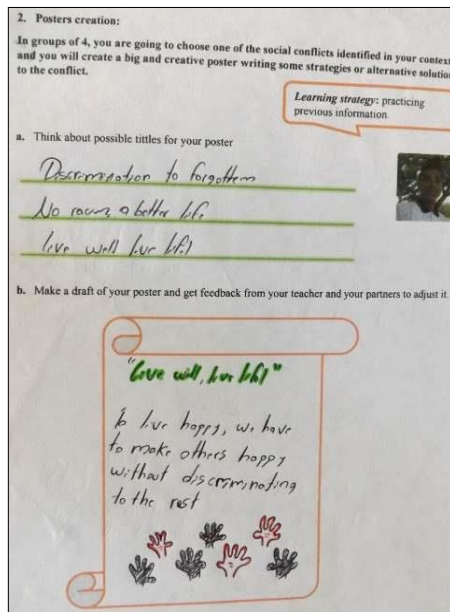 2. Posters creation:
In groups of 4, you are going to choose one of the social conflicts identified in your context
and you will create a big and creative poster writing some strategies or alternative solutio
to the conflict.
Learning strategy: practicing
previous information.
a. Think about possible tittles for your poster
Discrimination to forgottem
No racing a better life
live well live life!
b. Make a draft of your poster and get feedback from your teacher and your partners to adjust it.
"live well, live life!"
To live happy, we have
to make others happy
without discriminating
to the rest